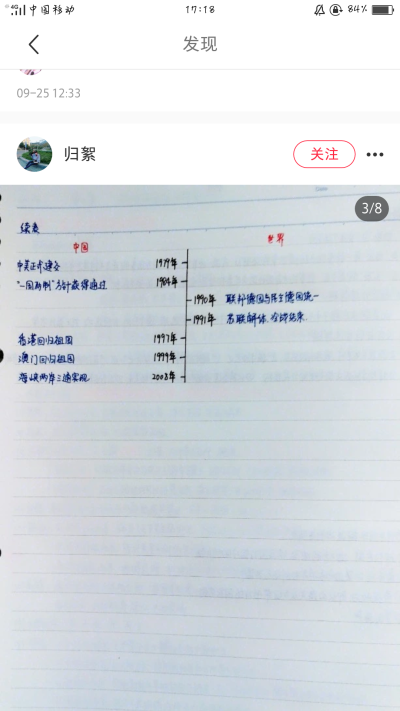 中国移动 17:18 84%
发现
09-25 12:33
归絮 关注
3/8
续表
中国 世界
中美正式建交 1979年
"一国两制"方针获得通过 1984年
1990年 联邦德国与民主德国统一
1991年 苏联解体 冷战结束
香港回归祖国 1997年
澳门回归祖国 1999年
海峡两岸三通实现 2008年